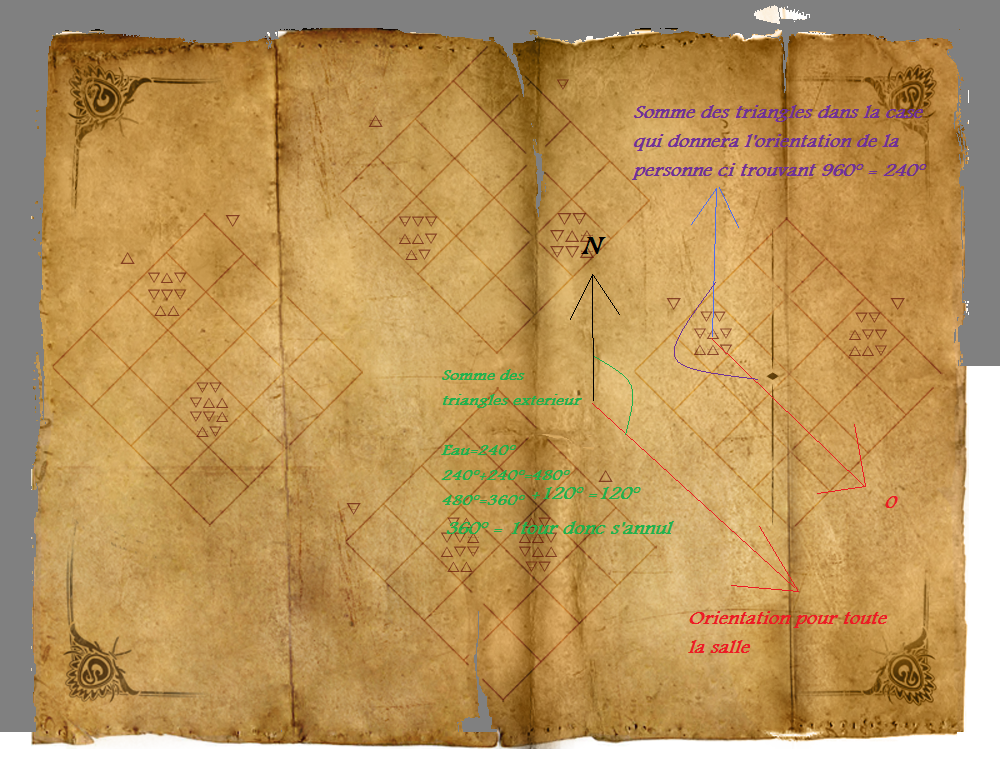 Somme des triangles dans la case
qui donnera l'orientation de la
personne ci trouvant 960° = 240°
N
Somme des
triangles exterieur
Eau=240°
240°+240°=480°
480°=360° +120° =120°
360° = 1tour donc s'annul
O
Orientation pour toute
la salle